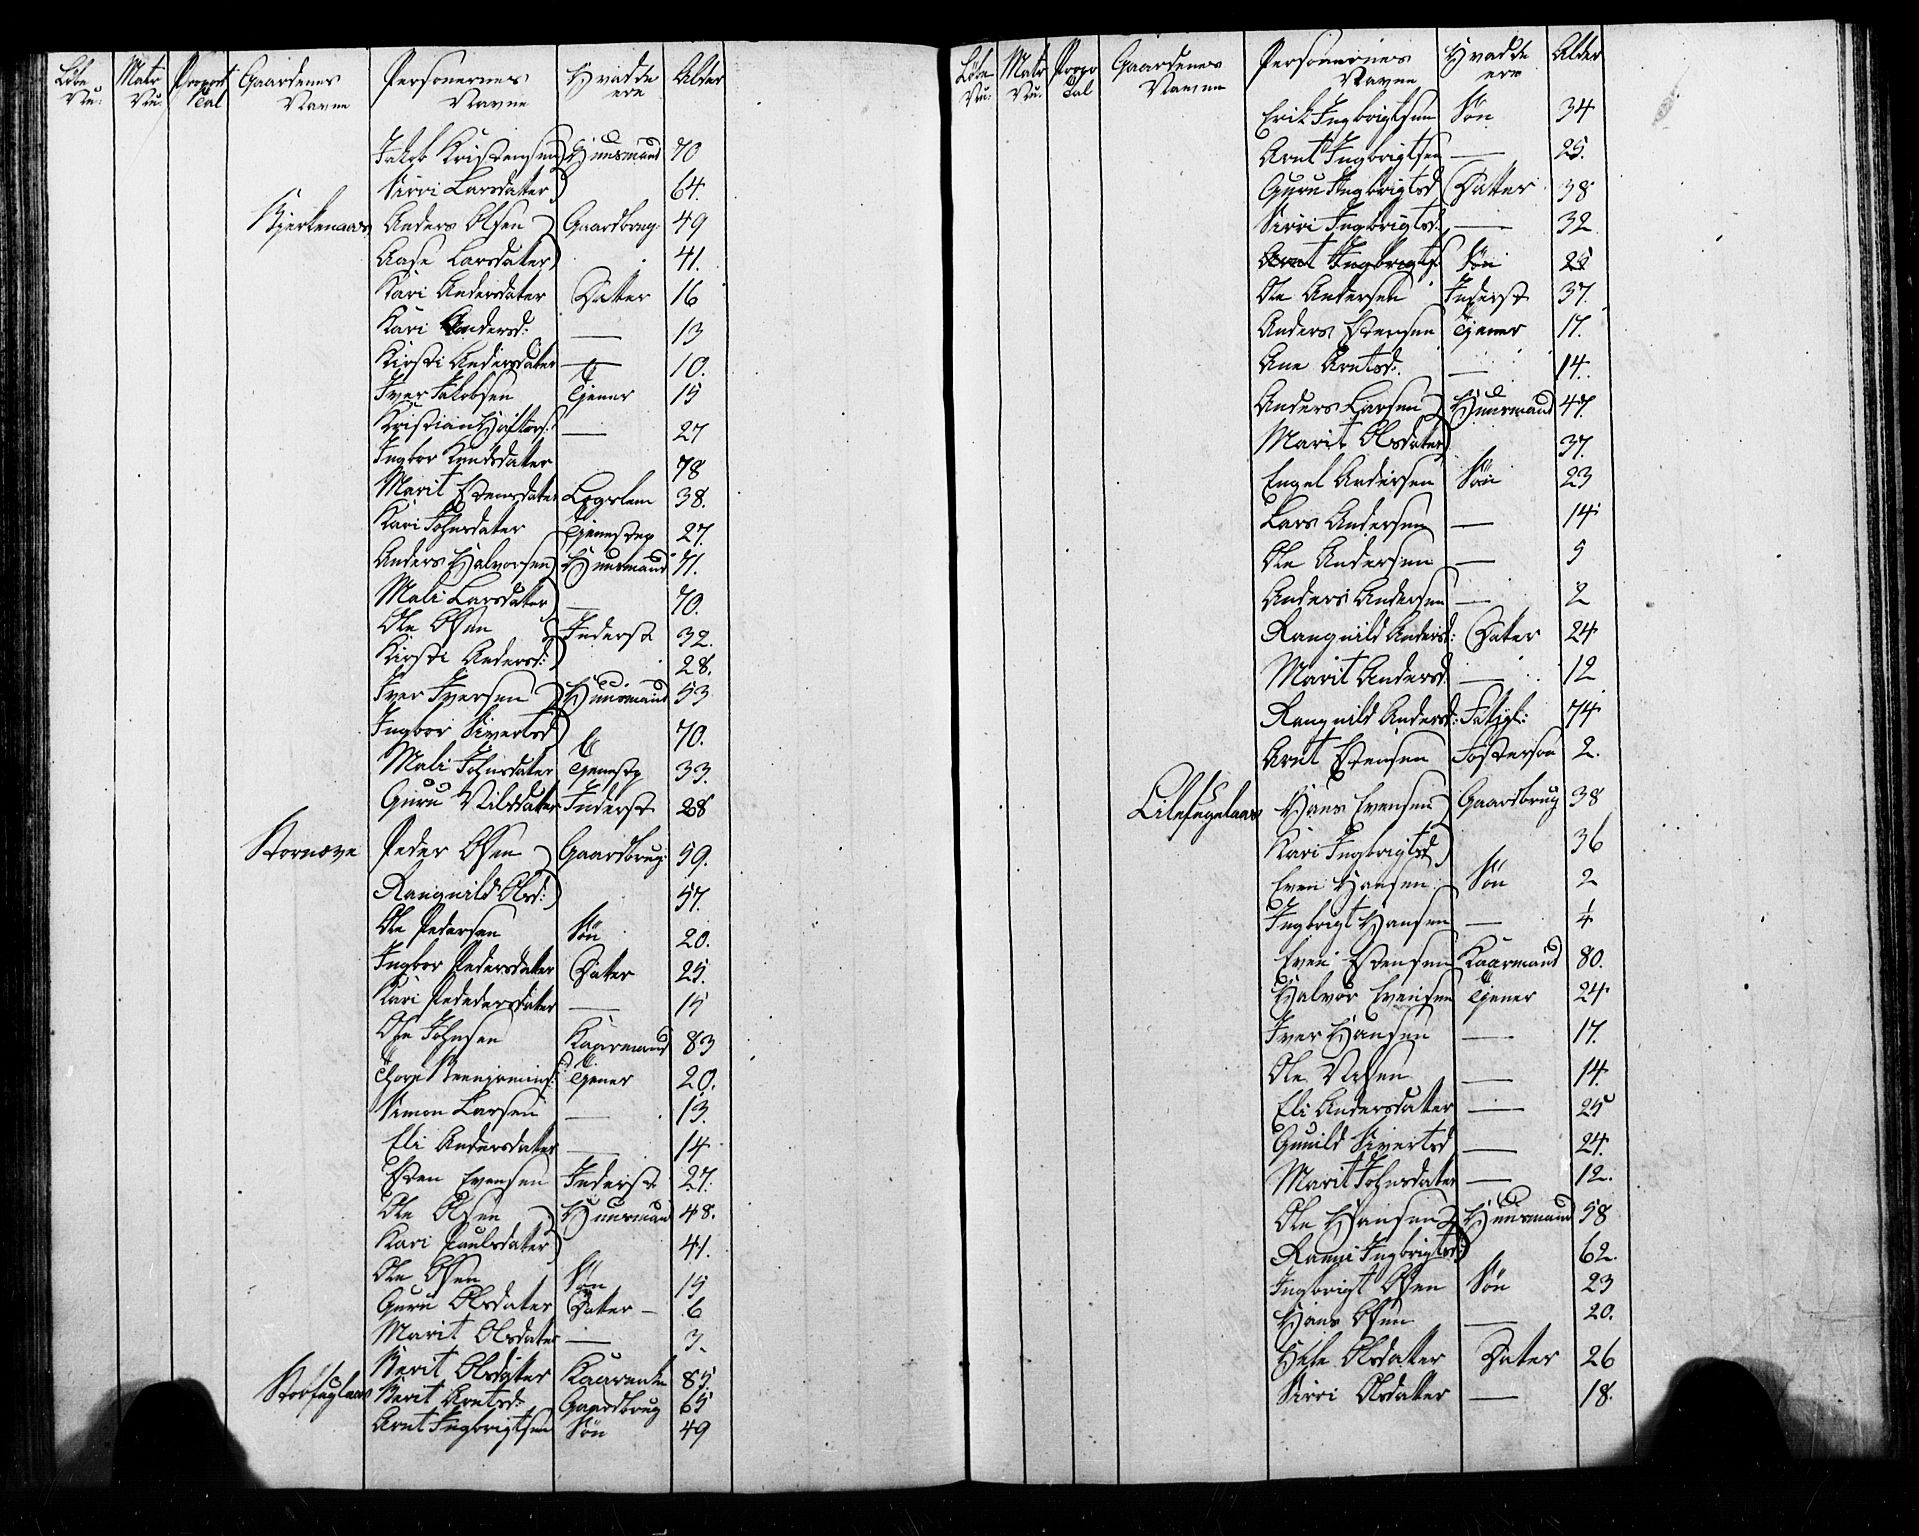 Löbe Nu: Matr Nu: Proport Tal Gaardenes Navne Personernes Navne Hvad de ere Alder
Jakob Kristensen Huusmand 70
Sirri Larsdatter 64.
Bjerkenaas Anders Olsen Gaardbrug: 49
Aase Larsdater 41.
Kari Andersdater Datter 16
Kari Andersd: — 13
Kirsti Andersdater — 10.
Iver Jakobsen Tjener 15
Kristian Hafters: — 27
Ingbor Knudsdatter 78
Marit Estensdater Logslem 38.
Kari Johnsdater Tjenestep 27.
Anders Halvorsen Huusmand 71.
Mali Larsdatter — 70.
Ole Olsen Inderst 32.
Kirsti Andersd: 28.
Iver Iversen Huusmand 53
Ingbor Sivertsd 70.
Mali Johnsdater Tjenestp 33.
Guru Nilsdater Inderst 28
Stornæve Peder Olsen Gaardbrug: 59.
Rangnild Olsd: 57.
Ole Pedersen Søn 20.
Ingbor Pedersdater Dater 25.
Kari Pededersdater — 15
Ole Johnsen Kaarmand 83
Thore Beenjamins: Tjener 20.
Simon Larsen — 13.
Eli Andersdater — 14
Esten Evensen Inderst 27.
Ole Olsen Huusmand 48.
Kari Paulsdater 41.
Ole Olsen Søn 15
Guru Olsdater Dater — 6
Marit Olsdater — 3.
Berit Olsdatter Kaarenke 85.
Storfuglaas Berit Arntsd: Gaardbrug 65
Arnt Ingbrigtsen Søn 49
Löbe Nu: Matr Nu: Propo Tal Gaardenes Navne Personernes Navne Hvad de ere Alder
Erik Ingbrigtsen Søn 34
Arnt Ingbrigtsen — 25.
Guru Ingbrigtsd Datter 38
Sirri Ingbrigtsd: — 32
Arnt Ingbrigts: Søn 25
Ole Andersen Inderst 37.
Anders Estensen Tjener 17.
Ane Arntsd: — 14.
Anders Larsen Huusmand 47.
Marit Olsdater 37.
Engel Andersen Søn 23
Lars Andersen — 14
Ole Andersen — 5
Anders Andersen — 2
Rangnild Andersd: Dater 24
Marit Andersd: — 12
Rangnild Andersd: Fatigl: 74
Arnt Estensen Fosterson 2.
Lilefugelaas Hans Evensen Gaardbrug 38
Kari Ingbrigtsd 36
Even Hansen Søn 2
Ingbrigt Hansen — 1/4
Even Estensen Kaarmand 80.
Halvor Evensen Tjener 24
Iver Hansen — 17.
Ole Nilsen — 14.
Eli Andersdatter — 25
Gunild Sivertsd — 24.
Marit Johnsdater — 12.
Ole Hansen Huusmand 58
Ranni Ingbrigtsd: 62
Ingbrigt Olsen Søn 23
Hans Olsen — 20.
Hele Olsdatter Dater 26
Sirri Olsdatter — 18.